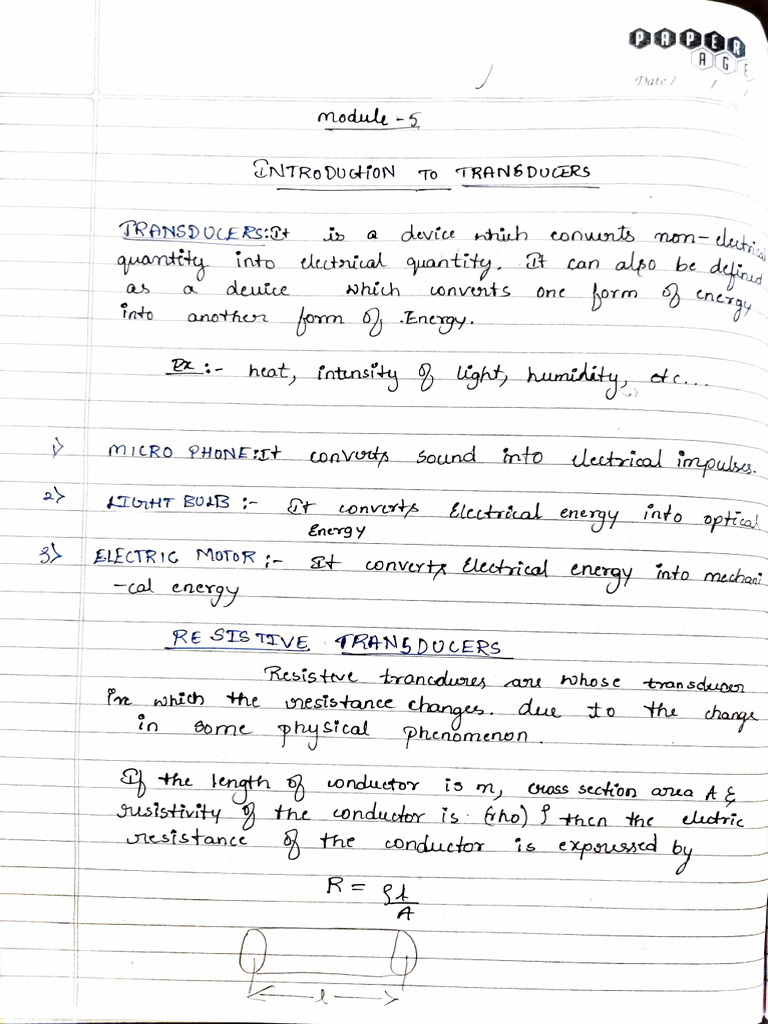 PAPER
AGE
Date / / /
Module - 5
INTRODUCTION TO TRANSDUCERS
TRANSDUCERS: It is a device which converts non-electrical
quantity into electrical quantity. It can also be defined
as a device which converts one form of energy
into another form of Energy.
Ex :- heat, intensity of light, humidity, etc...
1) MICRO PHONE: It converts sound into electrical impulses.
2) LIGHT BULB :- It converts Electrical energy into optical
Energy
3) ELECTRIC MOTOR :- It converts Electrical energy into mechani
-cal energy
RESISTIVE TRANSDUCERS
Resistive trancdures are whose transducer
in which the resistance changes. due to the change
in some physical phenomenon.
If the length of conductor is m, cross section area A &
resistivity of the conductor is (rho) ρ then the electric
resistance of the conductor is expressed by
R = ρl/A
l